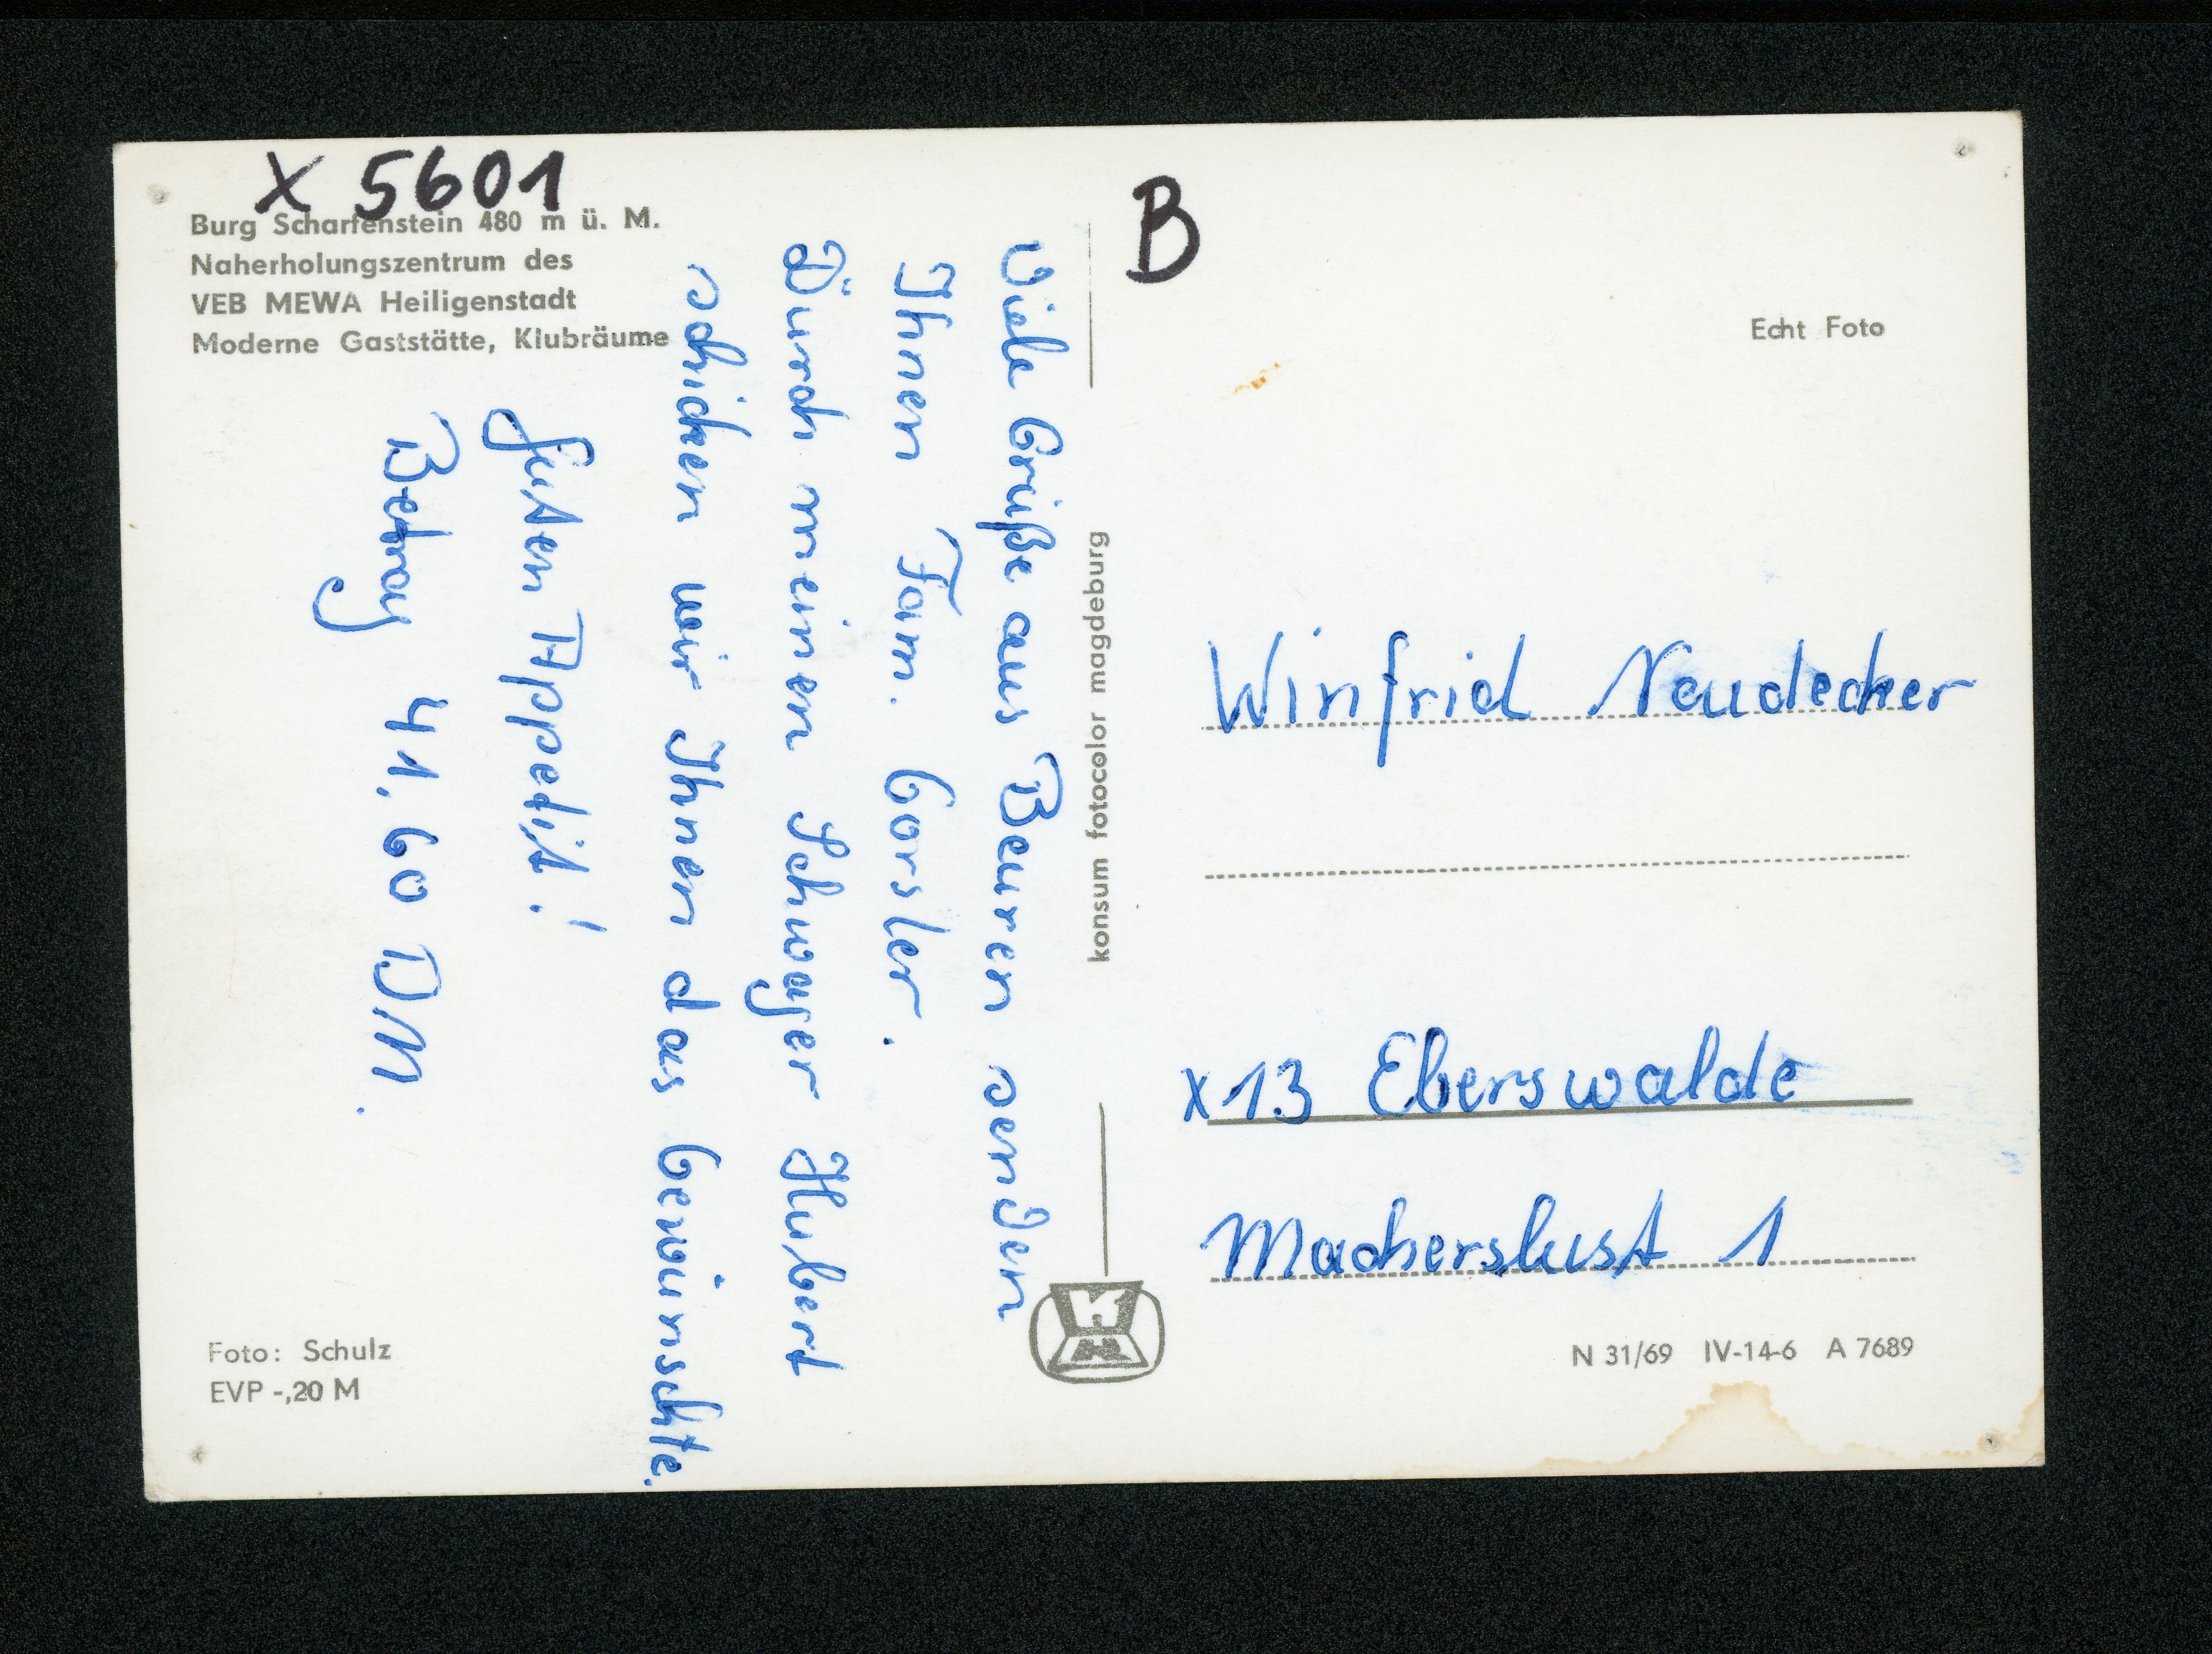 X 5601
Burg Scharfenstein 480 m ü. M.
Naherholungszentrum des
VEB MEWA Heiligenstadt
Moderne Gaststätte, Klubräume
Viele Grüße aus Beuren senden
Ihnen Fam. Gorsler.
Durch meinen Schwager Hubert
schicken wir Ihnen das Gewünschte.
Guten Appetit!
Betrag 41,60 DM.
Foto: Schulz
EVP -,20 M
konsum fotocolor magdeburg
B
Echt Foto
Winfrid Neudecker
X 13 Eberswalde
Macherslust 1
N 31/69 IV-14-6 A 7689